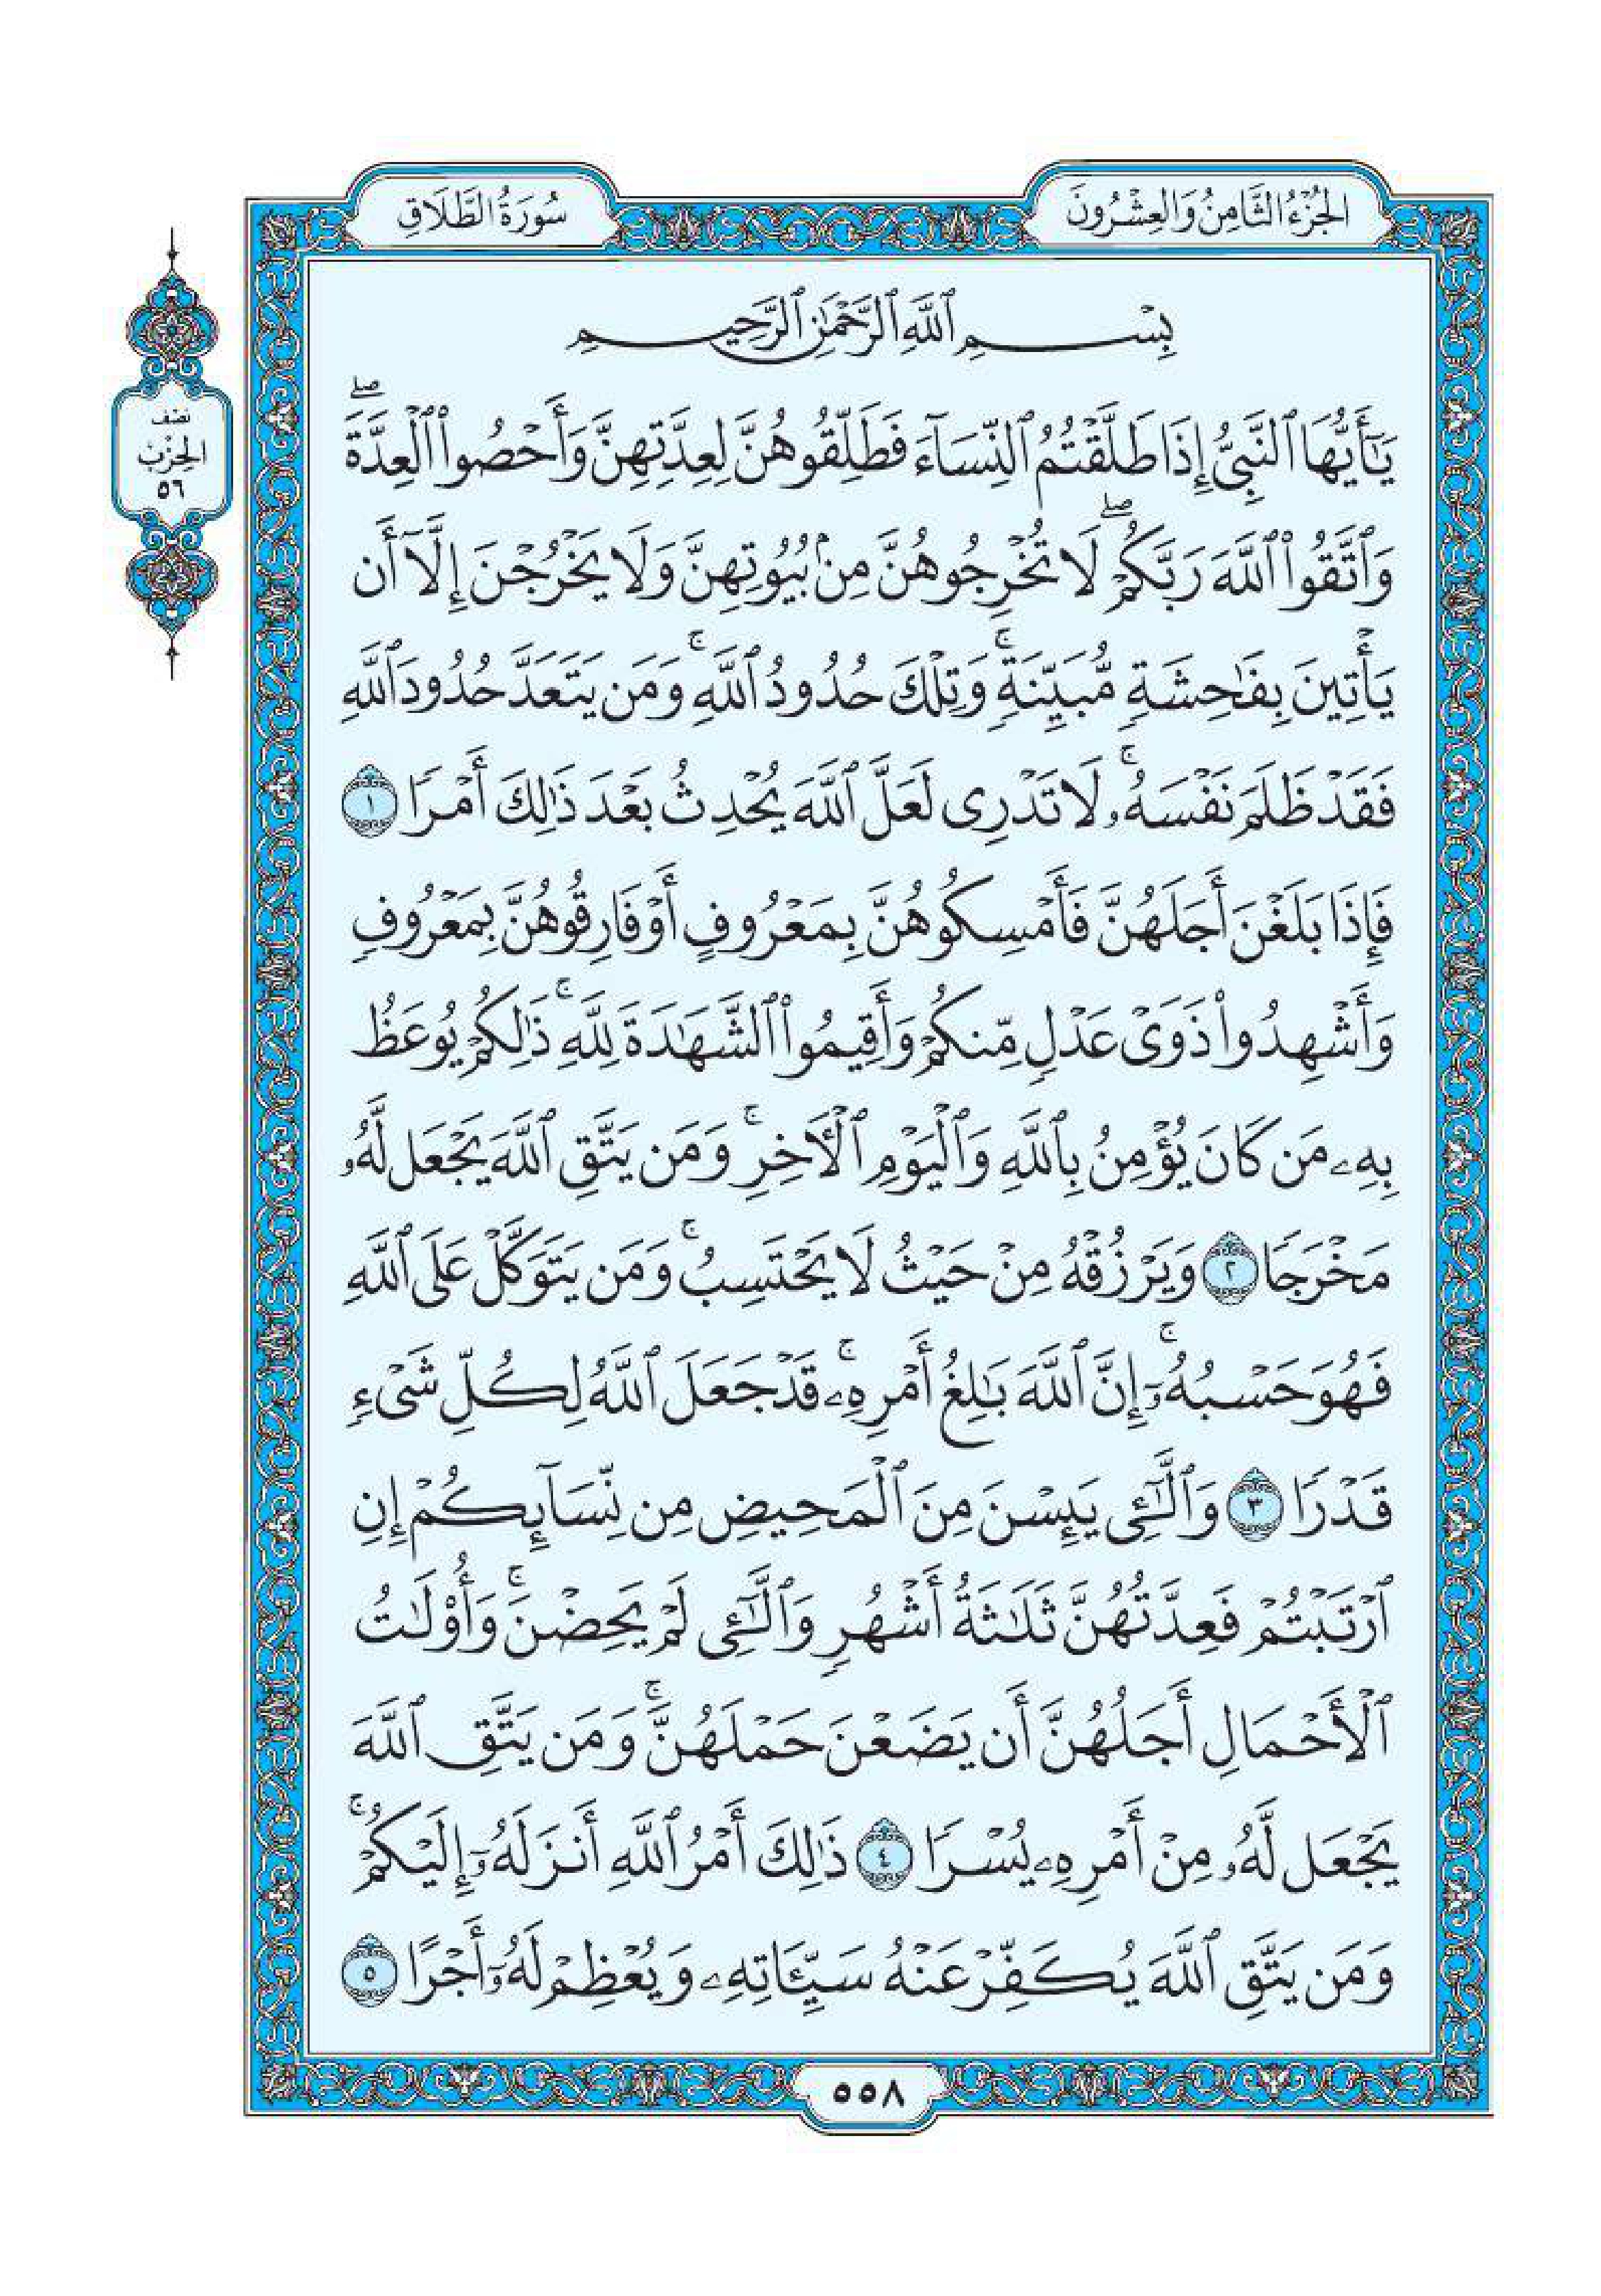 الجُزْءُ الثَّامِنُ وَالعِشْرُونَ
سُورَةُ الطَّلَاقِ
نصف
الحِزْب
٥٦
بِسْمِ ٱللَّهِ ٱلرَّحْمَٰنِ ٱلرَّحِيمِ
يَٰٓأَيُّهَا ٱلنَّبِىُّ إِذَا طَلَّقْتُمُ ٱلنِّسَآءَ فَطَلِّقُوهُنَّ لِعِدَّتِهِنَّ وَأَحْصُوا۟ ٱلْعِدَّةَ ۖ
وَٱتَّقُوا۟ ٱللَّهَ رَبَّكُمْ ۖ لَا تُخْرِجُوهُنَّ مِنۢ بُيُوتِهِنَّ وَلَا يَخْرُجْنَ إِلَّآ أَن
يَأْتِينَ بِفَٰحِشَةٍ مُّبَيِّنَةٍ ۚ وَتِلْكَ حُدُودُ ٱللَّهِ ۚ وَمَن يَتَعَدَّ حُدُودَ ٱللَّهِ
فَقَدْ ظَلَمَ نَفْسَهُۥ ۚ لَا تَدْرِى لَعَلَّ ٱللَّهَ يُحْدِثُ بَعْدَ ذَٰلِكَ أَمْرًا ١
فَإِذَا بَلَغْنَ أَجَلَهُنَّ فَأَمْسِكُوهُنَّ بِمَعْرُوفٍ أَوْ فَارِقُوهُنَّ بِمَعْرُوفٍ
وَأَشْهِدُوا۟ ذَوَىْ عَدْلٍ مِّنكُمْ وَأَقِيمُوا۟ ٱلشَّهَٰدَةَ لِلَّهِ ۚ ذَٰلِكُمْ يُوعَظُ
بِهِۦ مَن كَانَ يُؤْمِنُ بِٱللَّهِ وَٱلْيَوْمِ ٱلْءَاخِرِ ۚ وَمَن يَتَّقِ ٱللَّهَ يَجْعَل لَّهُۥ
مَخْرَجًا ٢ وَيَرْزُقْهُ مِنْ حَيْثُ لَا يَحْتَسِبُ ۚ وَمَن يَتَوَكَّلْ عَلَى ٱللَّهِ
فَهُوَ حَسْبُهُۥٓ ۚ إِنَّ ٱللَّهَ بَٰلِغُ أَمْرِهِۦ ۚ قَدْ جَعَلَ ٱللَّهُ لِكُلِّ شَىْءٍ
قَدْرًا ٣ وَٱلَّٰٓـِٔى يَئِسْنَ مِنَ ٱلْمَحِيضِ مِن نِّسَآئِكُمْ إِنِ
ٱرْتَبْتُمْ فَعِدَّتُهُنَّ ثَلَٰثَةُ أَشْهُرٍ وَٱلَّٰٓـِٔى لَمْ يَحِضْنَ ۚ وَأُو۟لَٰتُ
ٱلْأَحْمَالِ أَجَلُهُنَّ أَن يَضَعْنَ حَمْلَهُنَّ ۚ وَمَن يَتَّقِ ٱللَّهَ
يَجْعَل لَّهُۥ مِنْ أَمْرِهِۦ يُسْرًا ٤ ذَٰلِكَ أَمْرُ ٱللَّهِ أَنزَلَهُۥٓ إِلَيْكُمْ ۚ
وَمَن يَتَّقِ ٱللَّهَ يُكَفِّرْ عَنْهُ سَيِّـَٔاتِهِۦ وَيُعْظِمْ لَهُۥٓ أَجْرًا ٥
٥٥٨